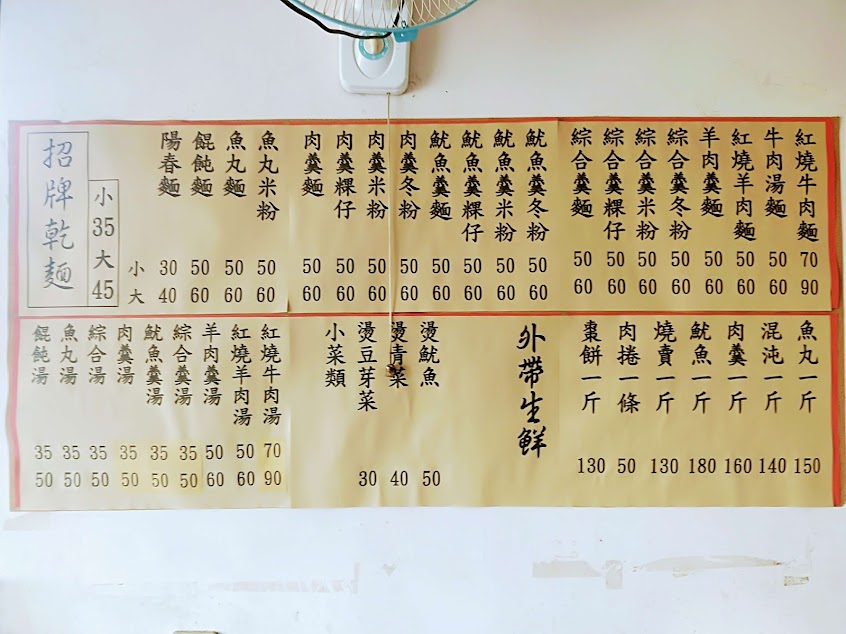 紅燒牛肉麵 70 90
牛肉湯麵 50 60
紅燒羊肉麵 50 60
羊肉羹麵 50 60
綜合羹冬粉 50 60
綜合羹米粉 50 60
綜合羹粿仔 50 60
綜合羹麵 50 60
魷魚羹冬粉 50 60
魷魚羹米粉 50 60
魷魚羹粿仔 50 60
魷魚羹麵 50 60
肉羹冬粉 50 60
肉羹米粉 50 60
肉羹粿仔 50 60
肉羹麵 50 60
魚丸米粉 50 60
魚丸麵 50 60
餛飩麵 50 60
陽春麵 30 40
小 大
小35大45
招牌乾麵
魚丸一斤 150
混沌一斤 140
肉羹一斤 160
魷魚一斤 180
燒賣一斤 130
肉捲一條 50
棗餅一斤 130
外帶生鮮
燙魷魚 50
燙青菜 40
燙豆芽菜 30
小菜類
紅燒牛肉湯 70 90
紅燒羊肉湯 50 60
羊肉羹湯 50 60
綜合羹湯 35 50
魷魚羹湯 35 50
肉羹湯 35 50
綜合湯 35 50
魚丸湯 35 50
餛飩湯 35 50